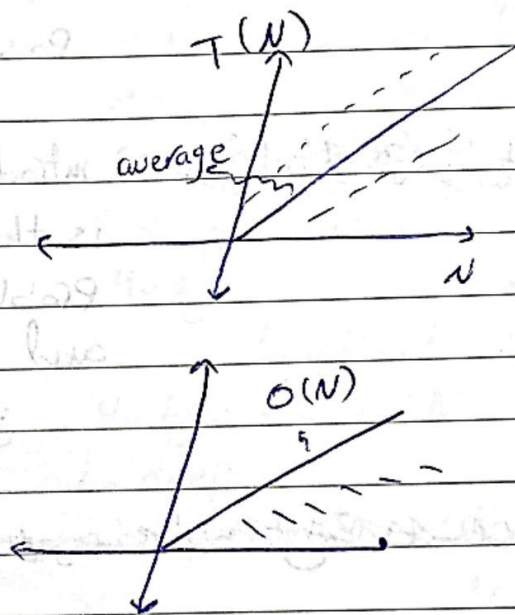 T(N)
average
N
O(N)